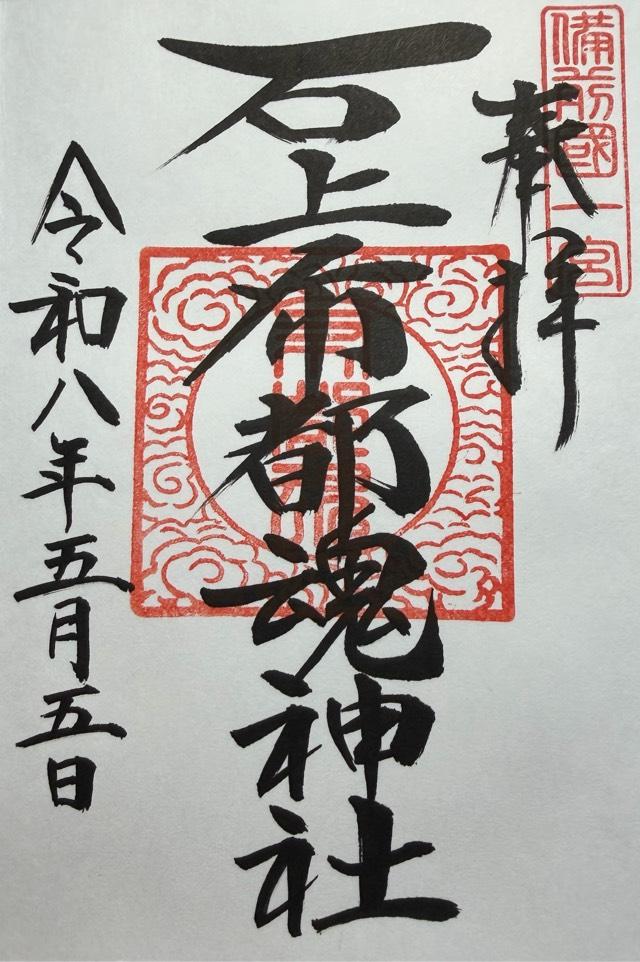 備前國一宮
奉拝
石上布都魂神社
令和八年五月五日